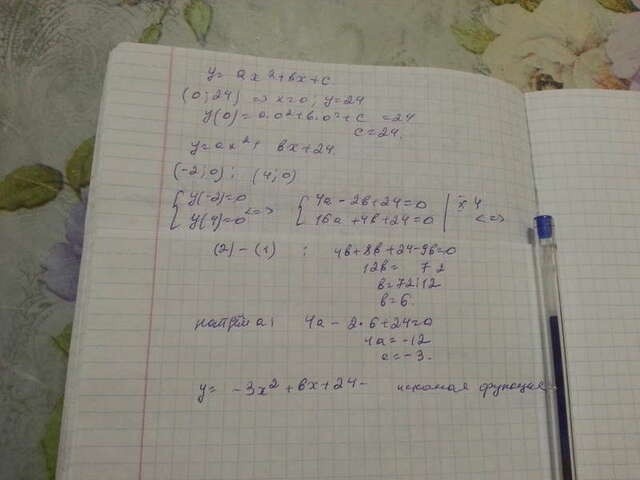 y= ax²+bx+c
(0;24) => x=0; y=24
y(0)=a.0²+b.0+c =24
c=24.
y=ax²+ bx+24.
(-2;0); (4;0)
{ y(-2)=0 { 4a-2b+24=0 | x4
{ y(4)=0 <=> { 16a+4b+24=0 | <=>
(2)-(1) : 4b+8b+24-96=0
12b= 72
b=72:12
b=6.
4a-2·6+24=0
4a=-12
a=-3.
y= -3x²+6x+24- искомая функция.